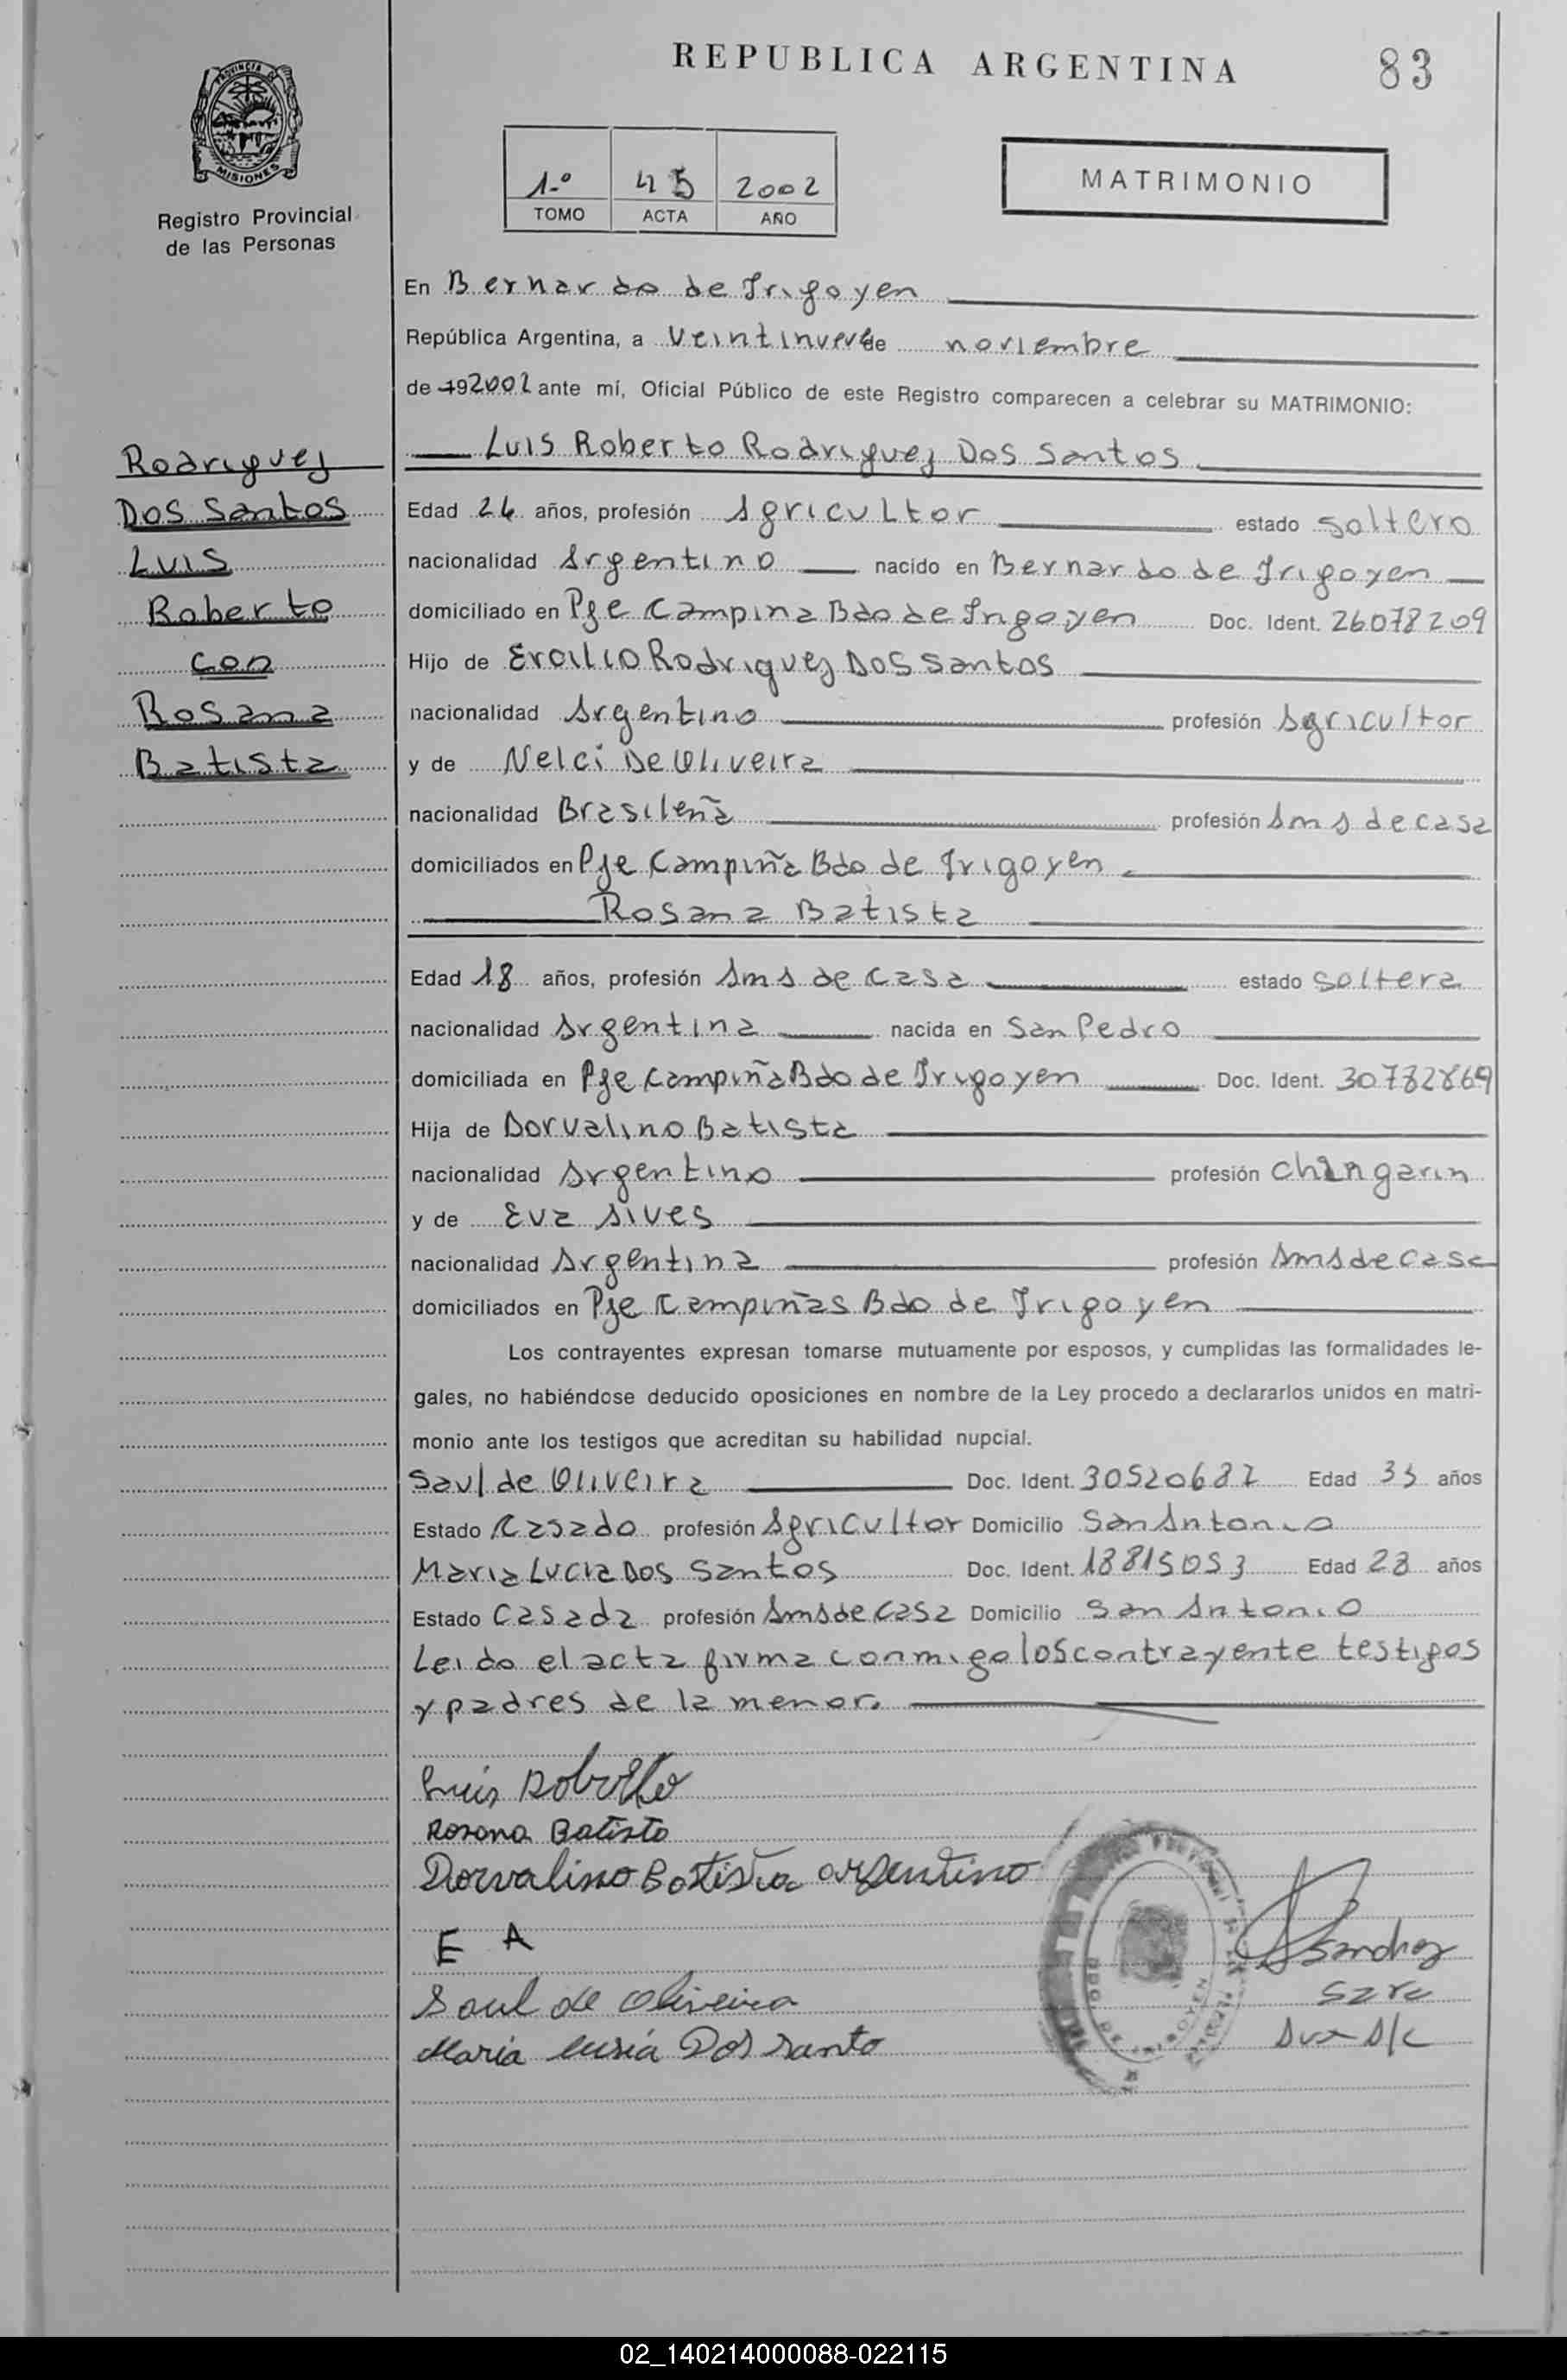 REPUBLICA ARGENTINA 83
PROVINCIA DE
MISIONES
Registro Provincial
de las Personas
1º 45 2002
TOMO ACTA AÑO
MATRIMONIO
En Bernardo de Irigoyen
República Argentina, a Veintinueve de noviembre
de 192002 ante mí, Oficial Público de este Registro comparecen a celebrar su MATRIMONIO:
Luis Roberto Rodriguez Dos Santos
Rodriguez
Dos Santos
Luis
Roberto
con
Rosana
Batista
Edad 24 años, profesión Agricultor estado soltero
nacionalidad Argentino nacido en Bernardo de Irigoyen
domiciliado en Pje Campina Bdo de Irigoyen Doc. Ident. 26078209
Hijo de Ercilio Rodriguez Dos Santos
nacionalidad Argentino profesión Agricultor
y de Nelci De Oliveira
nacionalidad Brasileña profesión Ama de casa
domiciliados en Pje Campiña Bdo de Irigoyen
Rosana Batista
Edad 18 años, profesión Ama de casa estado soltera
nacionalidad Argentina nacida en San Pedro
domiciliada en Pje Campiña Bdo de Irigoyen Doc. Ident. 30782869
Hija de Dorvalino Batista
nacionalidad Argentino profesión changarin
y de Eva Alves
nacionalidad Argentina profesión Ama de casa
domiciliados en Pje Campiñas Bdo de Irigoyen
Los contrayentes expresan tomarse mutuamente por esposos, y cumplidas las formalidades le-
gales, no habiéndose deducido oposiciones en nombre de la Ley procedo a declararlos unidos en matri-
monio ante los testigos que acreditan su habilidad nupcial.
Saul de Oliveira Doc. Ident. 30520687 Edad 33 años
Estado Casado profesión Agricultor Domicilio San Antonio
Maria Lucia Dos Santos Doc. Ident. 18815053 Edad 28 años
Estado Casada profesión Ama de Casa Domicilio San Antonio
Leido el acta firma conmigo los contrayente testigos
y padres de la menor.
Luis Roberto
Rosana Batista
Dorvalino Batista argentino
E A
Saul de Oliveira
Maria Lusia Dos Santo
Sanchez
Sara
02_140214000088-022115